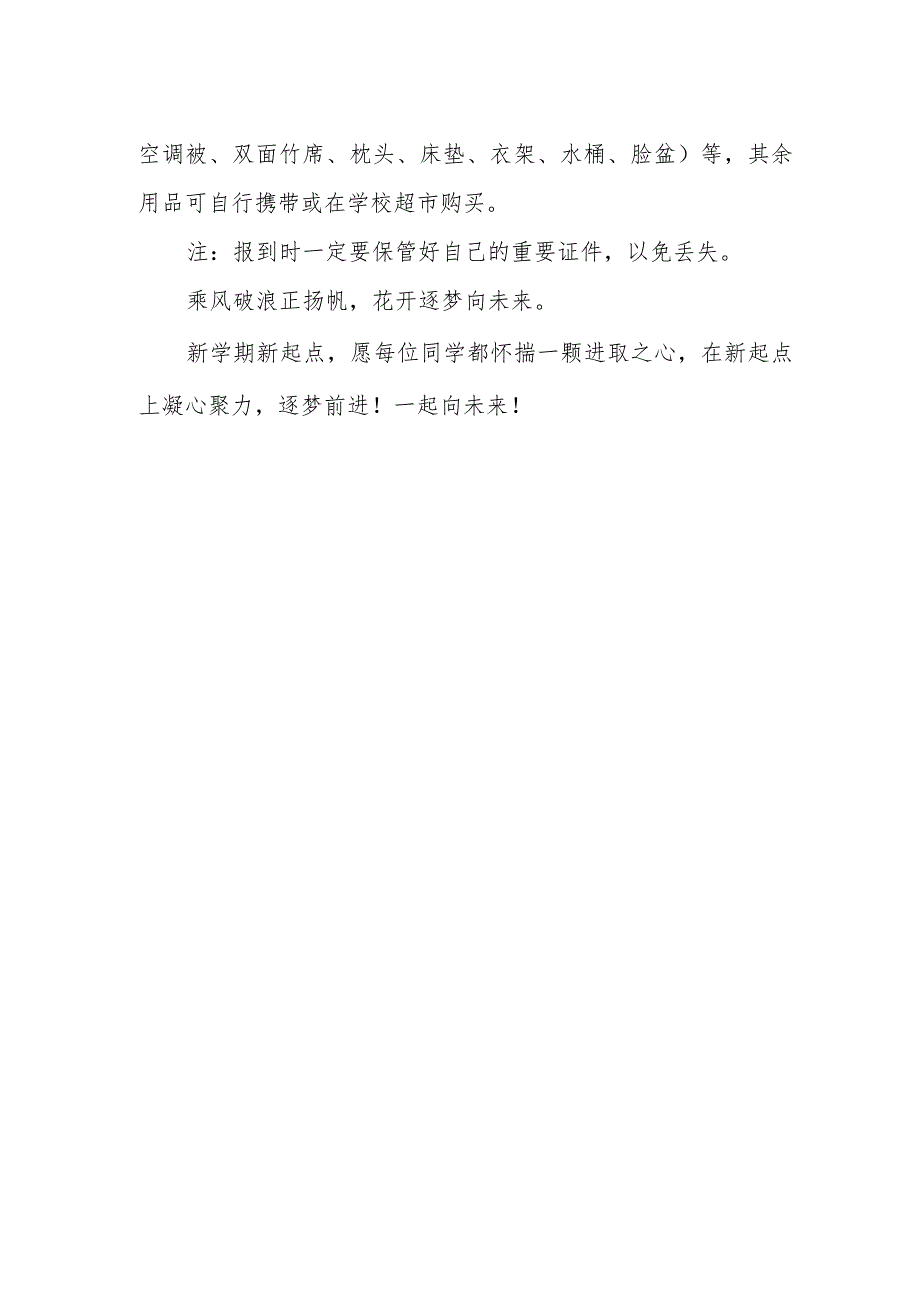 空调被、双面竹席、枕头、床垫、衣架、水桶、脸盆）等，其余
用品可自行携带或在学校超市购买。
注：报到时一定要保管好自己的重要证件，以免丢失。
乘风破浪正扬帆，花开逐梦向未来。
新学期新起点，愿每位同学都怀揣一颗进取之心，在新起点
上凝心聚力，逐梦前进！一起向未来！